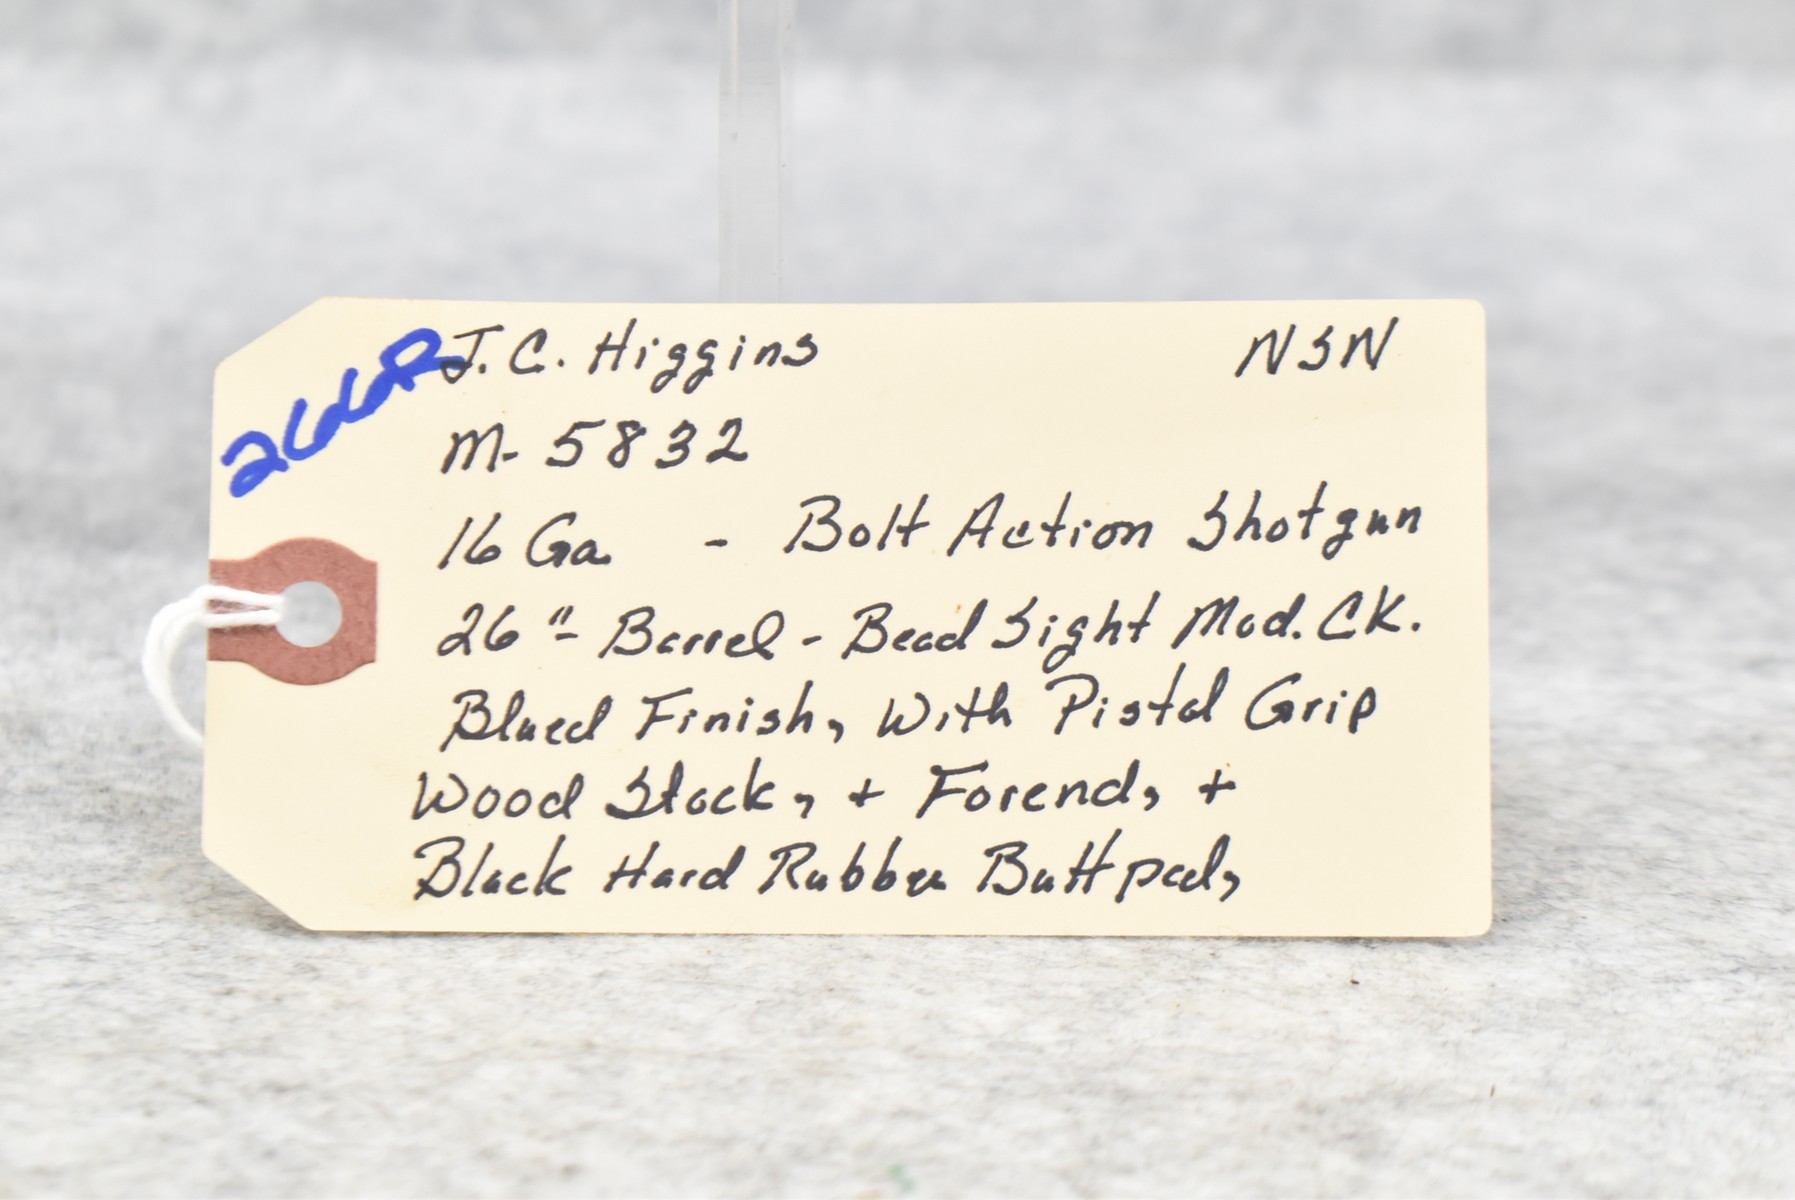 266R
J.C. Higgins NSN
M- 5832
16 Ga. - Bolt Action Shotgun
26"- Barrel - Bead Sight Mod. CK.
Blued Finish, With Pistol Grip
Wood Stock, + Forend, +
Black Hard Rubber Buttpad,